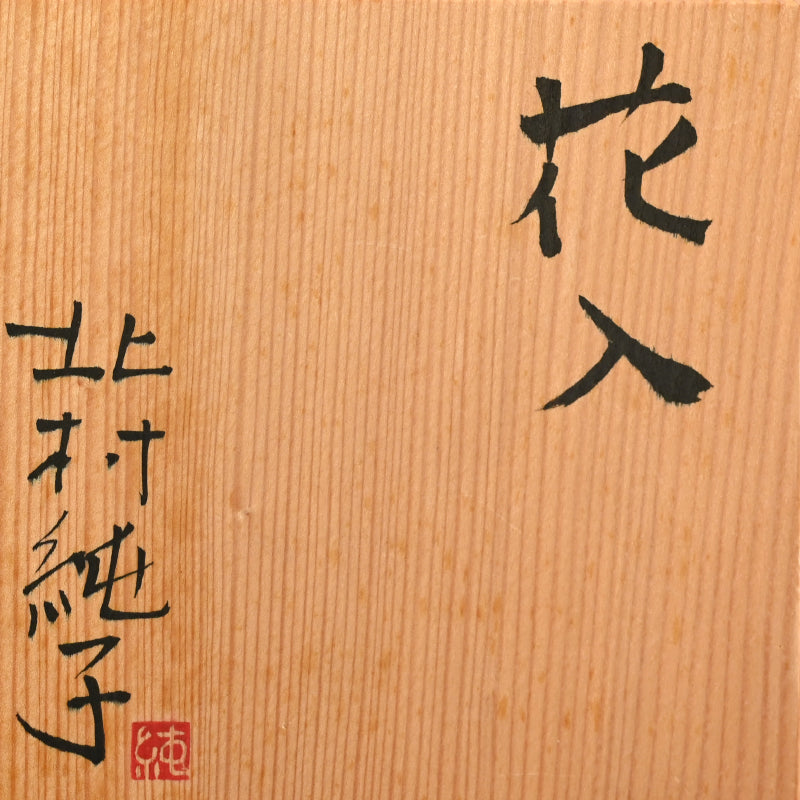 花入
北村純子
純